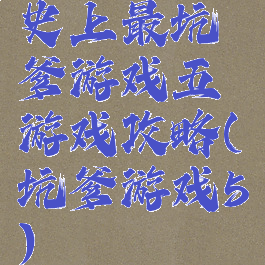 史上最坑
爹游戏五
游戏攻略(
坑爹游戏5
)